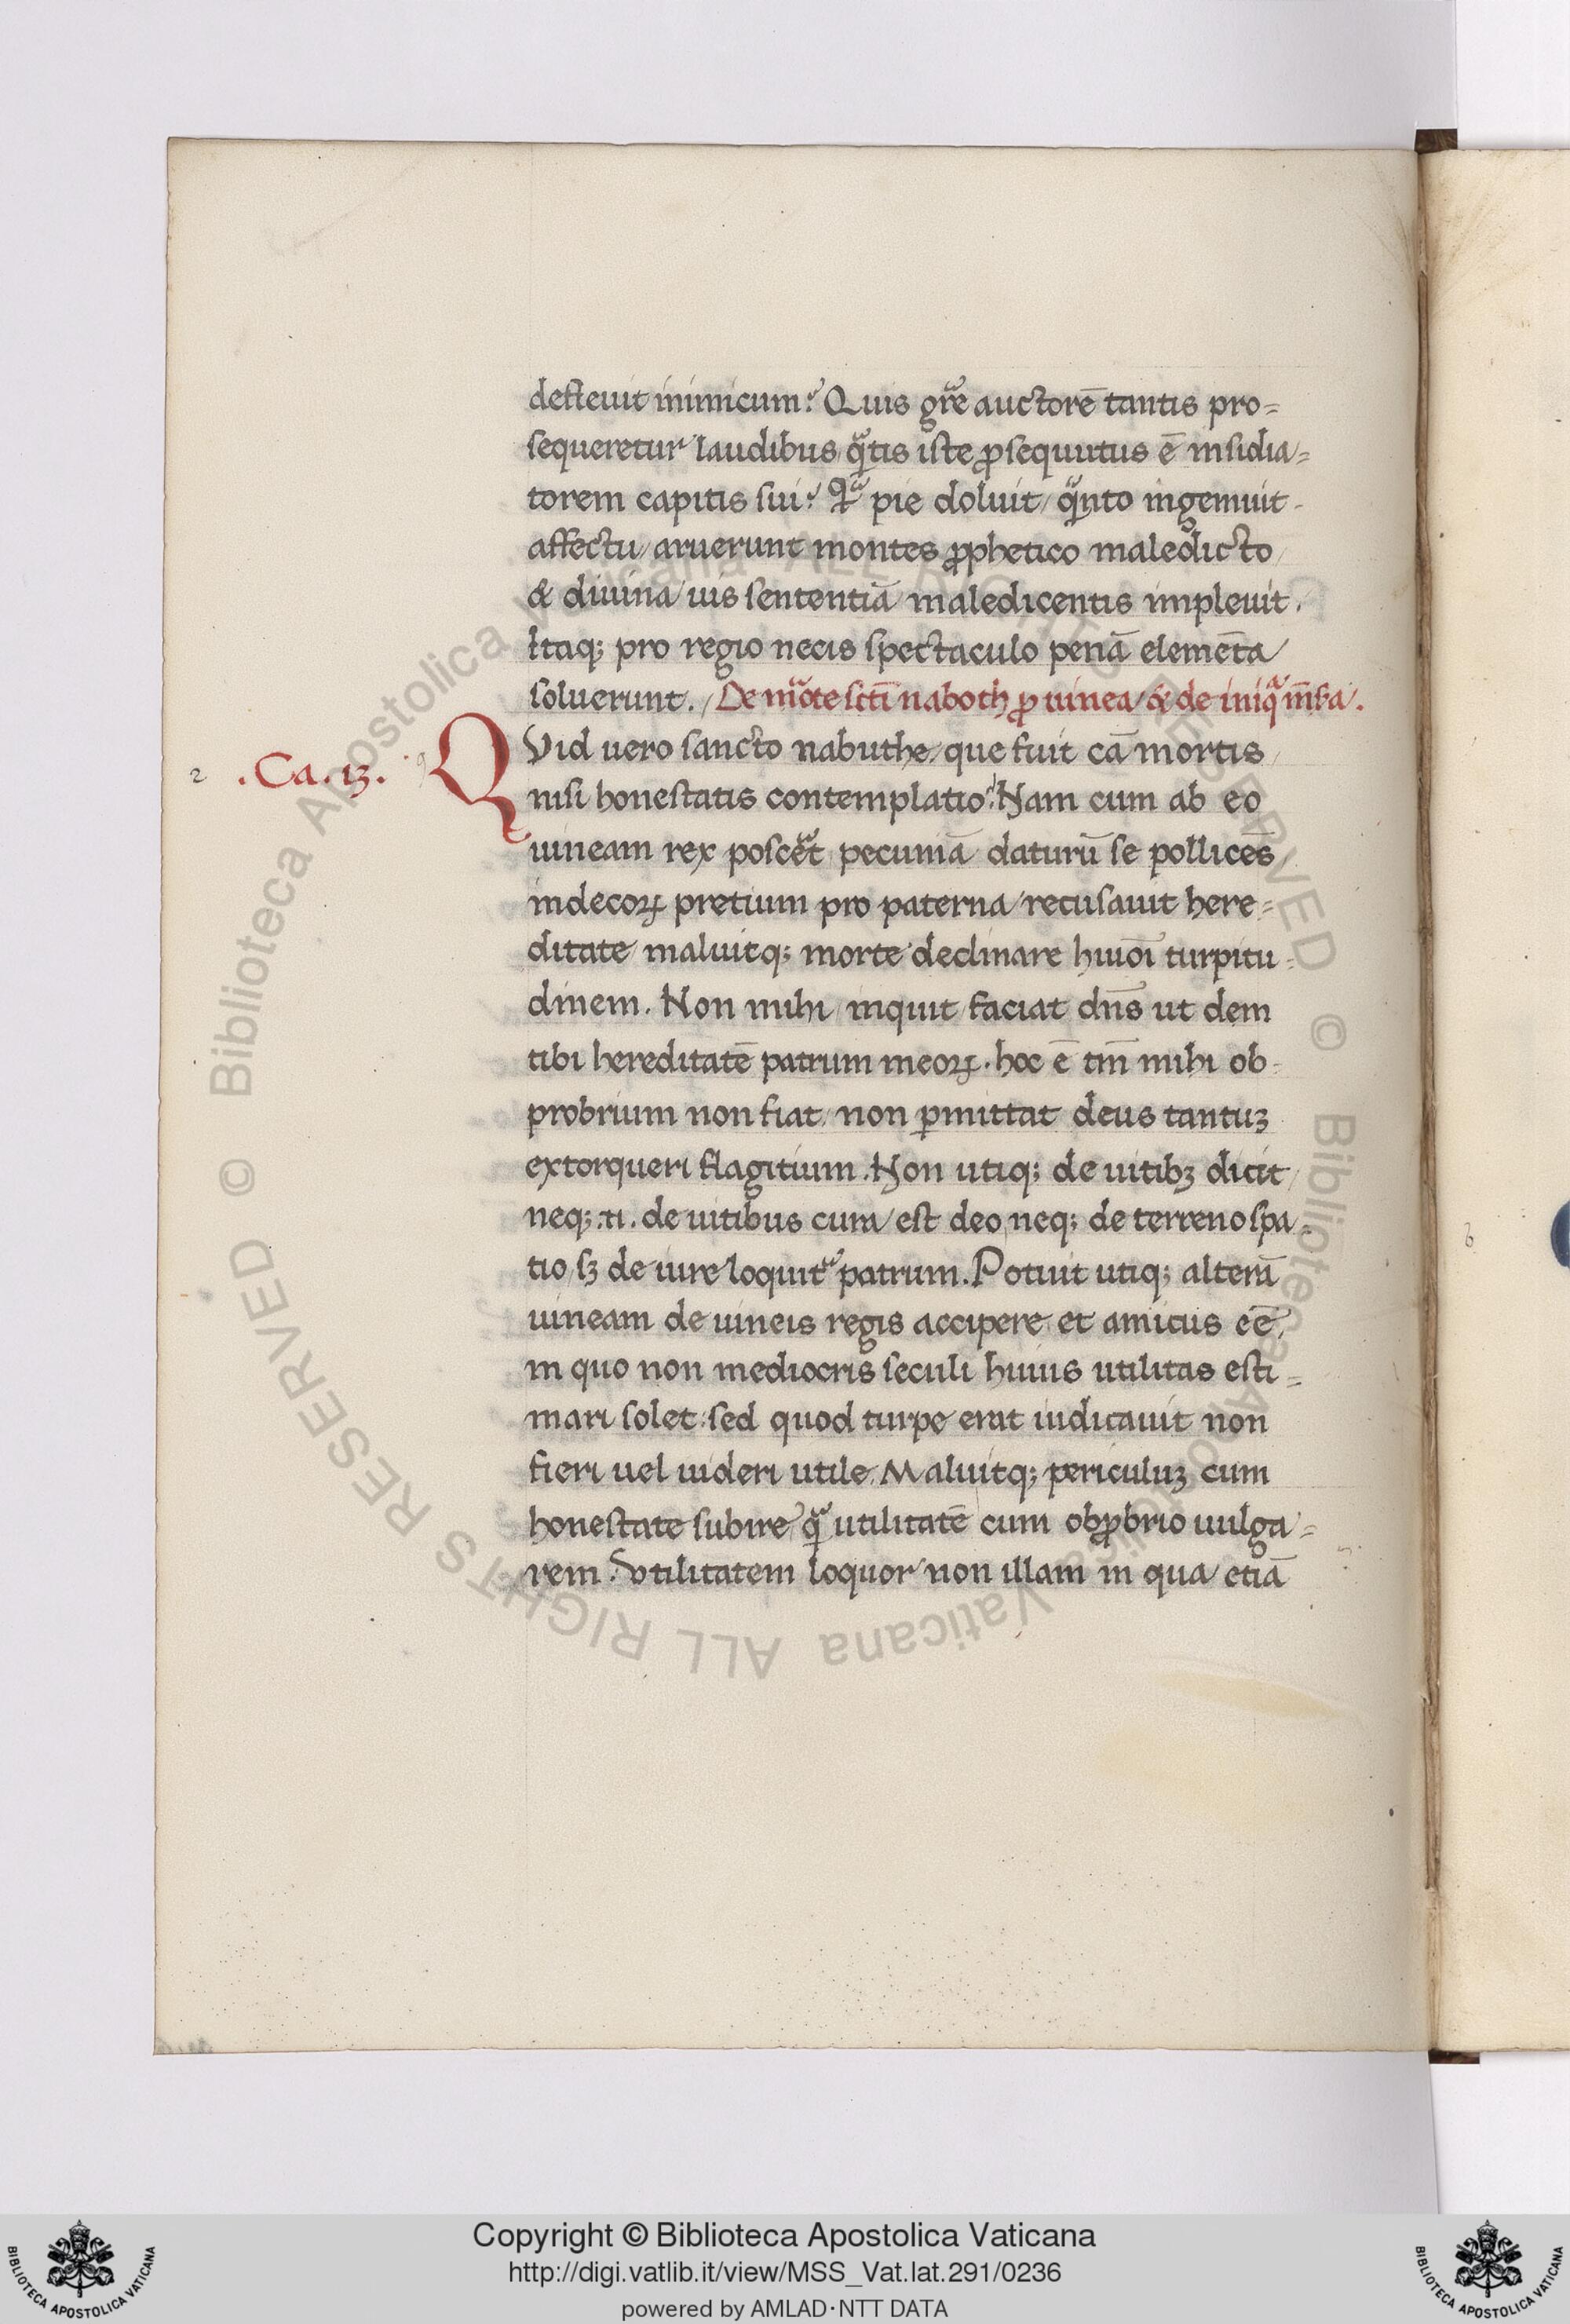 defleuit inimicum? Quis gr̃e auctorē tantis pro=
sequeretur laudibus q̃tis iste ꝓsequutus ē insidia=
torem capitis sui? Q̃ pie doluit / q̃nto ingemuit
affectu / aruerunt montes ꝓphetico maledicto
& diuina uis sententiā maledicentis impleuit.
Itaq; pro regio necis spectaculo penā elemēta
soluerunt. De morte scti naboth ꝓ uinea & de iniq̃
.Ca. 13. QVid uero sancto nabuthe / que fuit cā mortis
2 nisi honestatis contemplatio? Nam cum ab eo
uineam rex poscẽt pecuniā daturū se pollicēs
indecoꝝ pretium pro paterna recusauit here=
ditate maluitq; morte declinare huiōi turpitu=
dinem. Non mihi inquit faciat dñs ut dem
tibi hereditatē patrum meoꝝ. hoc ē tm̄ mihi ob=
probrium non fiat / non ꝑmittat deus tantuꝫ
extorqueri flagitium. Non utiq; de uitibꝫ dicit /
neq; .n. de uitibus cura est deo neq; de terreno spa=
tio / sꝫ de iure loquit̃ patrum. Potuit utiq; alterā
uineam de uineis regis accipere et amicus eē,
in quo non mediocris seculi huius utilitas esti=
mari solet: sed quod turpe erat iudicauit non
fieri uel uideri utile. Maluitq; periculuꝫ cum
honestate subire q̃ utilitatē cum obꝓbrio uulga=
rem. Vtilitatem loquor non illam in qua etiā
6
© Biblioteca Apostolica Vaticana ALL RIGHTS RESERVED © Biblioteca Apostolica Vaticana ALL RIGHTS RESERVED
Copyright © Biblioteca Apostolica Vaticana
http://digi.vatlib.it/view/MSS_Vat.lat.291/0236
powered by AMLAD·NTT DATA
BIBLIOTECA APOSTOLICA VATICANA
BIBLIOTECA APOSTOLICA VATICANA